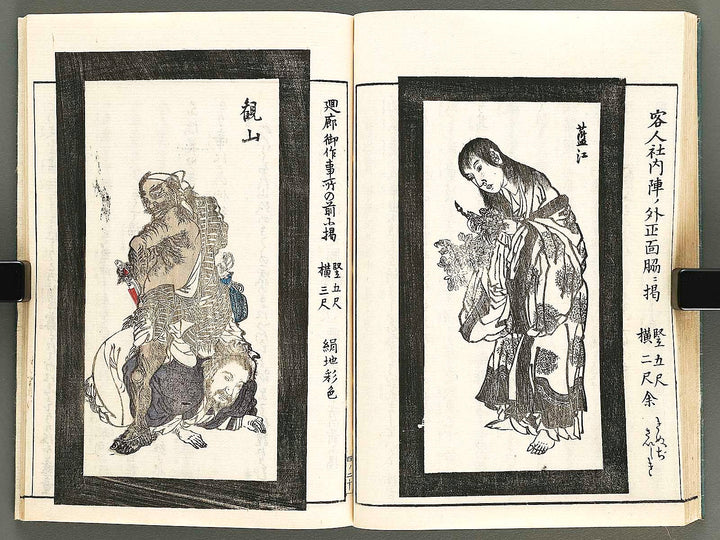 客人社内陣ノ外正面脇ニ掲
竪五尺
横二尺余
きぬぢ
さいしき
藍江
廻廊御作事所の前ニ掲
竪五尺
横三尺
絹地彩色
観山